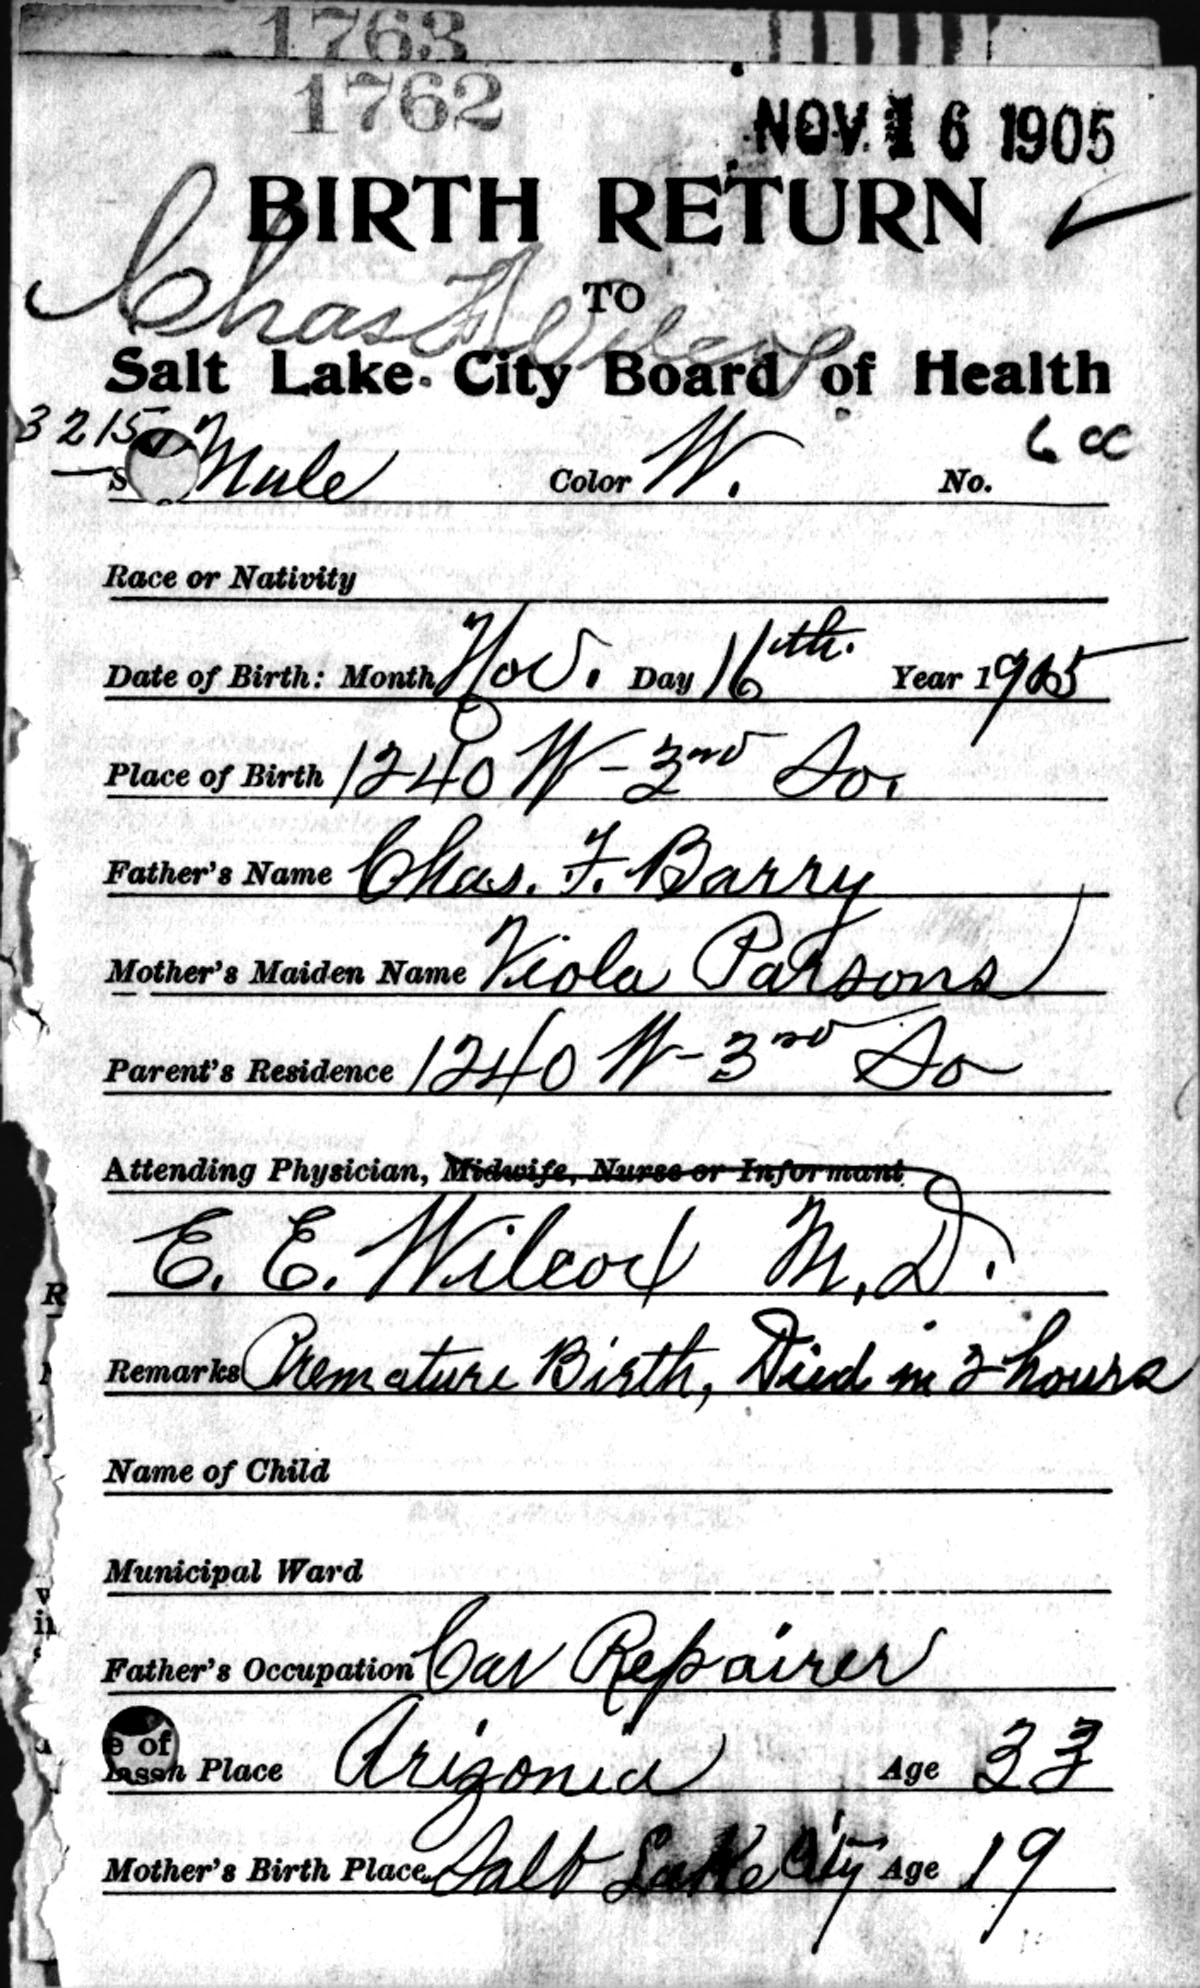 1763
1762
NOV 16 1905
BIRTH RETURN
TO
Chas F Wilcox
Salt Lake City Board of Health
3215
S Male Color W. No.
Race or Nativity
Date of Birth: Month Nov. Day 16th. Year 1905
Place of Birth 1240 W-3nd So.
Father's Name Chas. F. Barry
Mother's Maiden Name Viola Parsons
Parent's Residence 1240 W-3nd So
Attending Physician, Midwife, Nurse or Informant
E. E. Wilcox M. D.
R
Remarks Premature Birth, Died in 2 hours
Name of Child
Municipal Ward
Father's Occupation Car Repairer
e of
Place Arizonia Age 33
Mother's Birth Place Salt Lake City Age 19